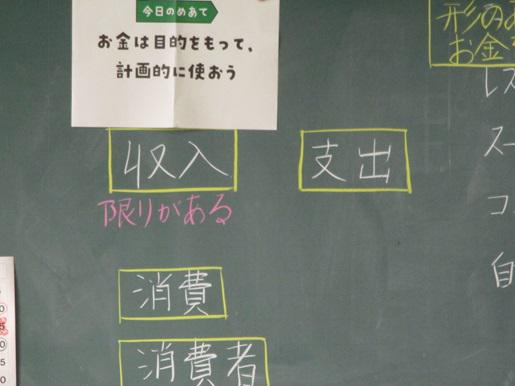 今日のめあて
お金は目的をもって、
計画的に使おう
収入
支出
限りがある
消費
消費者
形のあ
お金を
レス
スー
コン
自